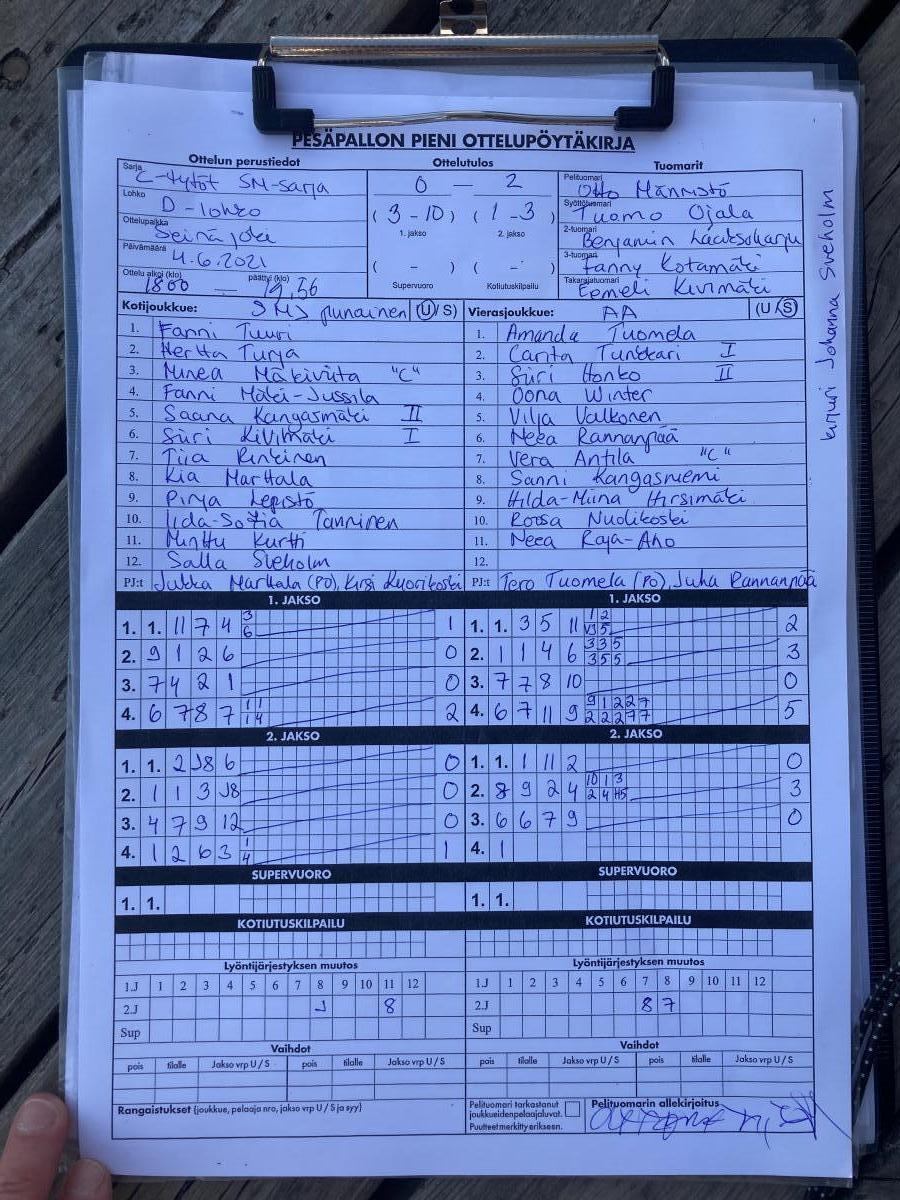 PESÄPALLON PIENI OTTELUPÖYTÄKIRJA
Ottelun perustiedot Ottelutulos Tuomarit
Sarja C-tytöt SM-sarja
Lohko D-lohko
Ottelupaikka Seinäjoki
Päivämäärä 4.6.2021
Ottelu alkoi (klo) 1800 — päättyi (klo) 19,56
0 — 2
(3-10) (1-3)
1. jakso 2. jakso
( - ) ( - )
Supervuoro Kotiutuskilpailu
Pelituomari Otto Männistö
Syöttötuomari Tuomo Ojala
2-tuomari Benjamin Laaksoharju
3-tuomari Fanny Kotamäki
Takarajatuomari Eemeli Kivimäki
kirjuri Johanna Sveholm
Kotijoukkue: SMJ punainen (U/S)
1. Fanni Tuuri
2. Hertta Turja
3. Minea Mäkiviita "C"
4. Fanni Mäki-Jussila
5. Saana Kangasmäki II
6. Siiri Kivimäki I
7. Tiia Rintinen
8. Kia Marttala
9. Pinja Lepistö
10. Iida-Sofia Tanninen
11. Minttu Kurtti
12. Salla Sveholm
PJ:t Jukka Marttala (PO), Kirsi Kuorikoski
Vierasjoukkue: AA (U/S)
1. Amanda Tuomela
2. Carita Tunkkari I
3. Siiri Honko II
4. Oona Winter
5. Vilja Valkonen
6. Neea Rannanpää
7. Vera Antila "C"
8. Sanni Kangasniemi
9. Hilda-Miina Hirsimäki
10. Roosa Nuolikoski
11. Neea Raja-Aho
12.
PJ:t Tero Tuomela (PO), Juha Rannanpää
1. JAKSO
1. 1. 11 7 4 3 6 1
2. 9 1 2 6 0
3. 7 4 2 1 0
4. 6 7 8 7 1 1 1 4 2
2. JAKSO
1. 1. 2 J8 6 0
2. 1 1 3 J8 0
3. 4 7 9 12 0
4. 1 2 6 3 1 4 1
SUPERVUORO
1. 1.
KOTIUTUSKILPAILU
1. JAKSO
1. 1. 3 5 11 1 2 3 5 2
2. 1 1 4 6 3 3 5 3 5 5 3
3. 7 7 8 10 0
4. 6 7 11 9 9 1 2 2 7 2 2 2 7 7 5
2. JAKSO
1. 1. 1 11 2 0
2. 8 9 2 4 10 1 3 2 4 5 3
3. 6 6 7 9 0
4. 1
SUPERVUORO
1. 1.
KOTIUTUSKILPAILU
Lyöntijärjestyksen muutos
1.J 1 2 3 4 5 6 7 8 9 10 11 12
2.J J 8
Sup
Vaihdot
pois tilalle Jakso vrp U / S pois tilalle Jakso vrp U / S
Rangaistukset (joukkue, pelaaja nro, jakso vrp U / S ja syy)
Lyöntijärjestyksen muutos
1.J 1 2 3 4 5 6 7 8 9 10 11 12
2.J 8 7
Sup
Vaihdot
pois tilalle Jakso vrp U / S pois tilalle Jakso vrp U / S
Pelituomari tarkastanut
joukkueiden pelaajaluvat.
Puutteet merkitty erikseen.
Pelituomarin allekirjoitus